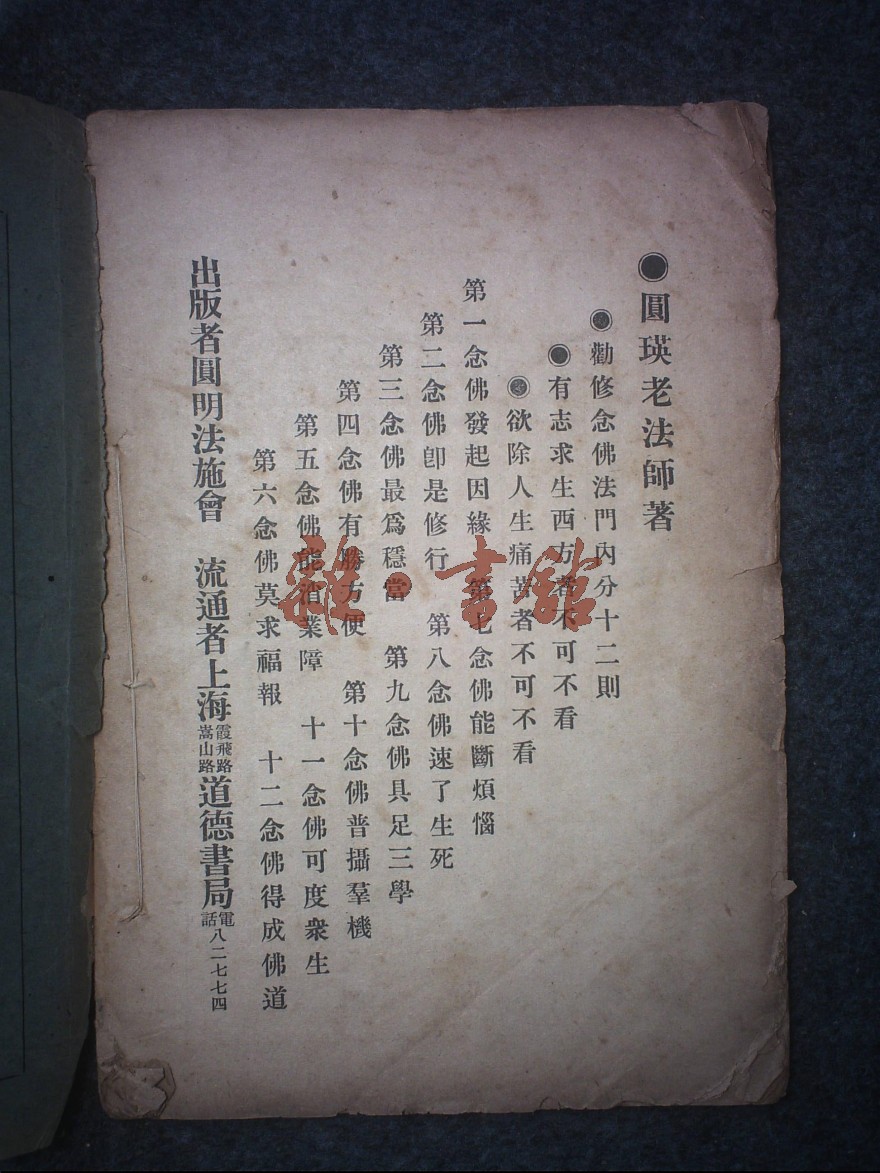 ●圓瑛老法師著
●勸修念佛法門內分十二則
●有志求生西方者不可不看
●欲除人生痛苦者不可不看
第一念佛發起因緣 第七念佛能斷煩惱
第二念佛卽是修行 第八念佛速了生死
第三念佛最爲穩當 第九念佛具足三學
第四念佛有勝方便 第十念佛普攝羣機
第五念佛能消業障 十一念佛可度衆生
第六念佛莫求福報 十二念佛得成佛道
出版者圓明法施會 流通者上海霞飛路嵩山路道德書局電話八二七七四
雜·書館